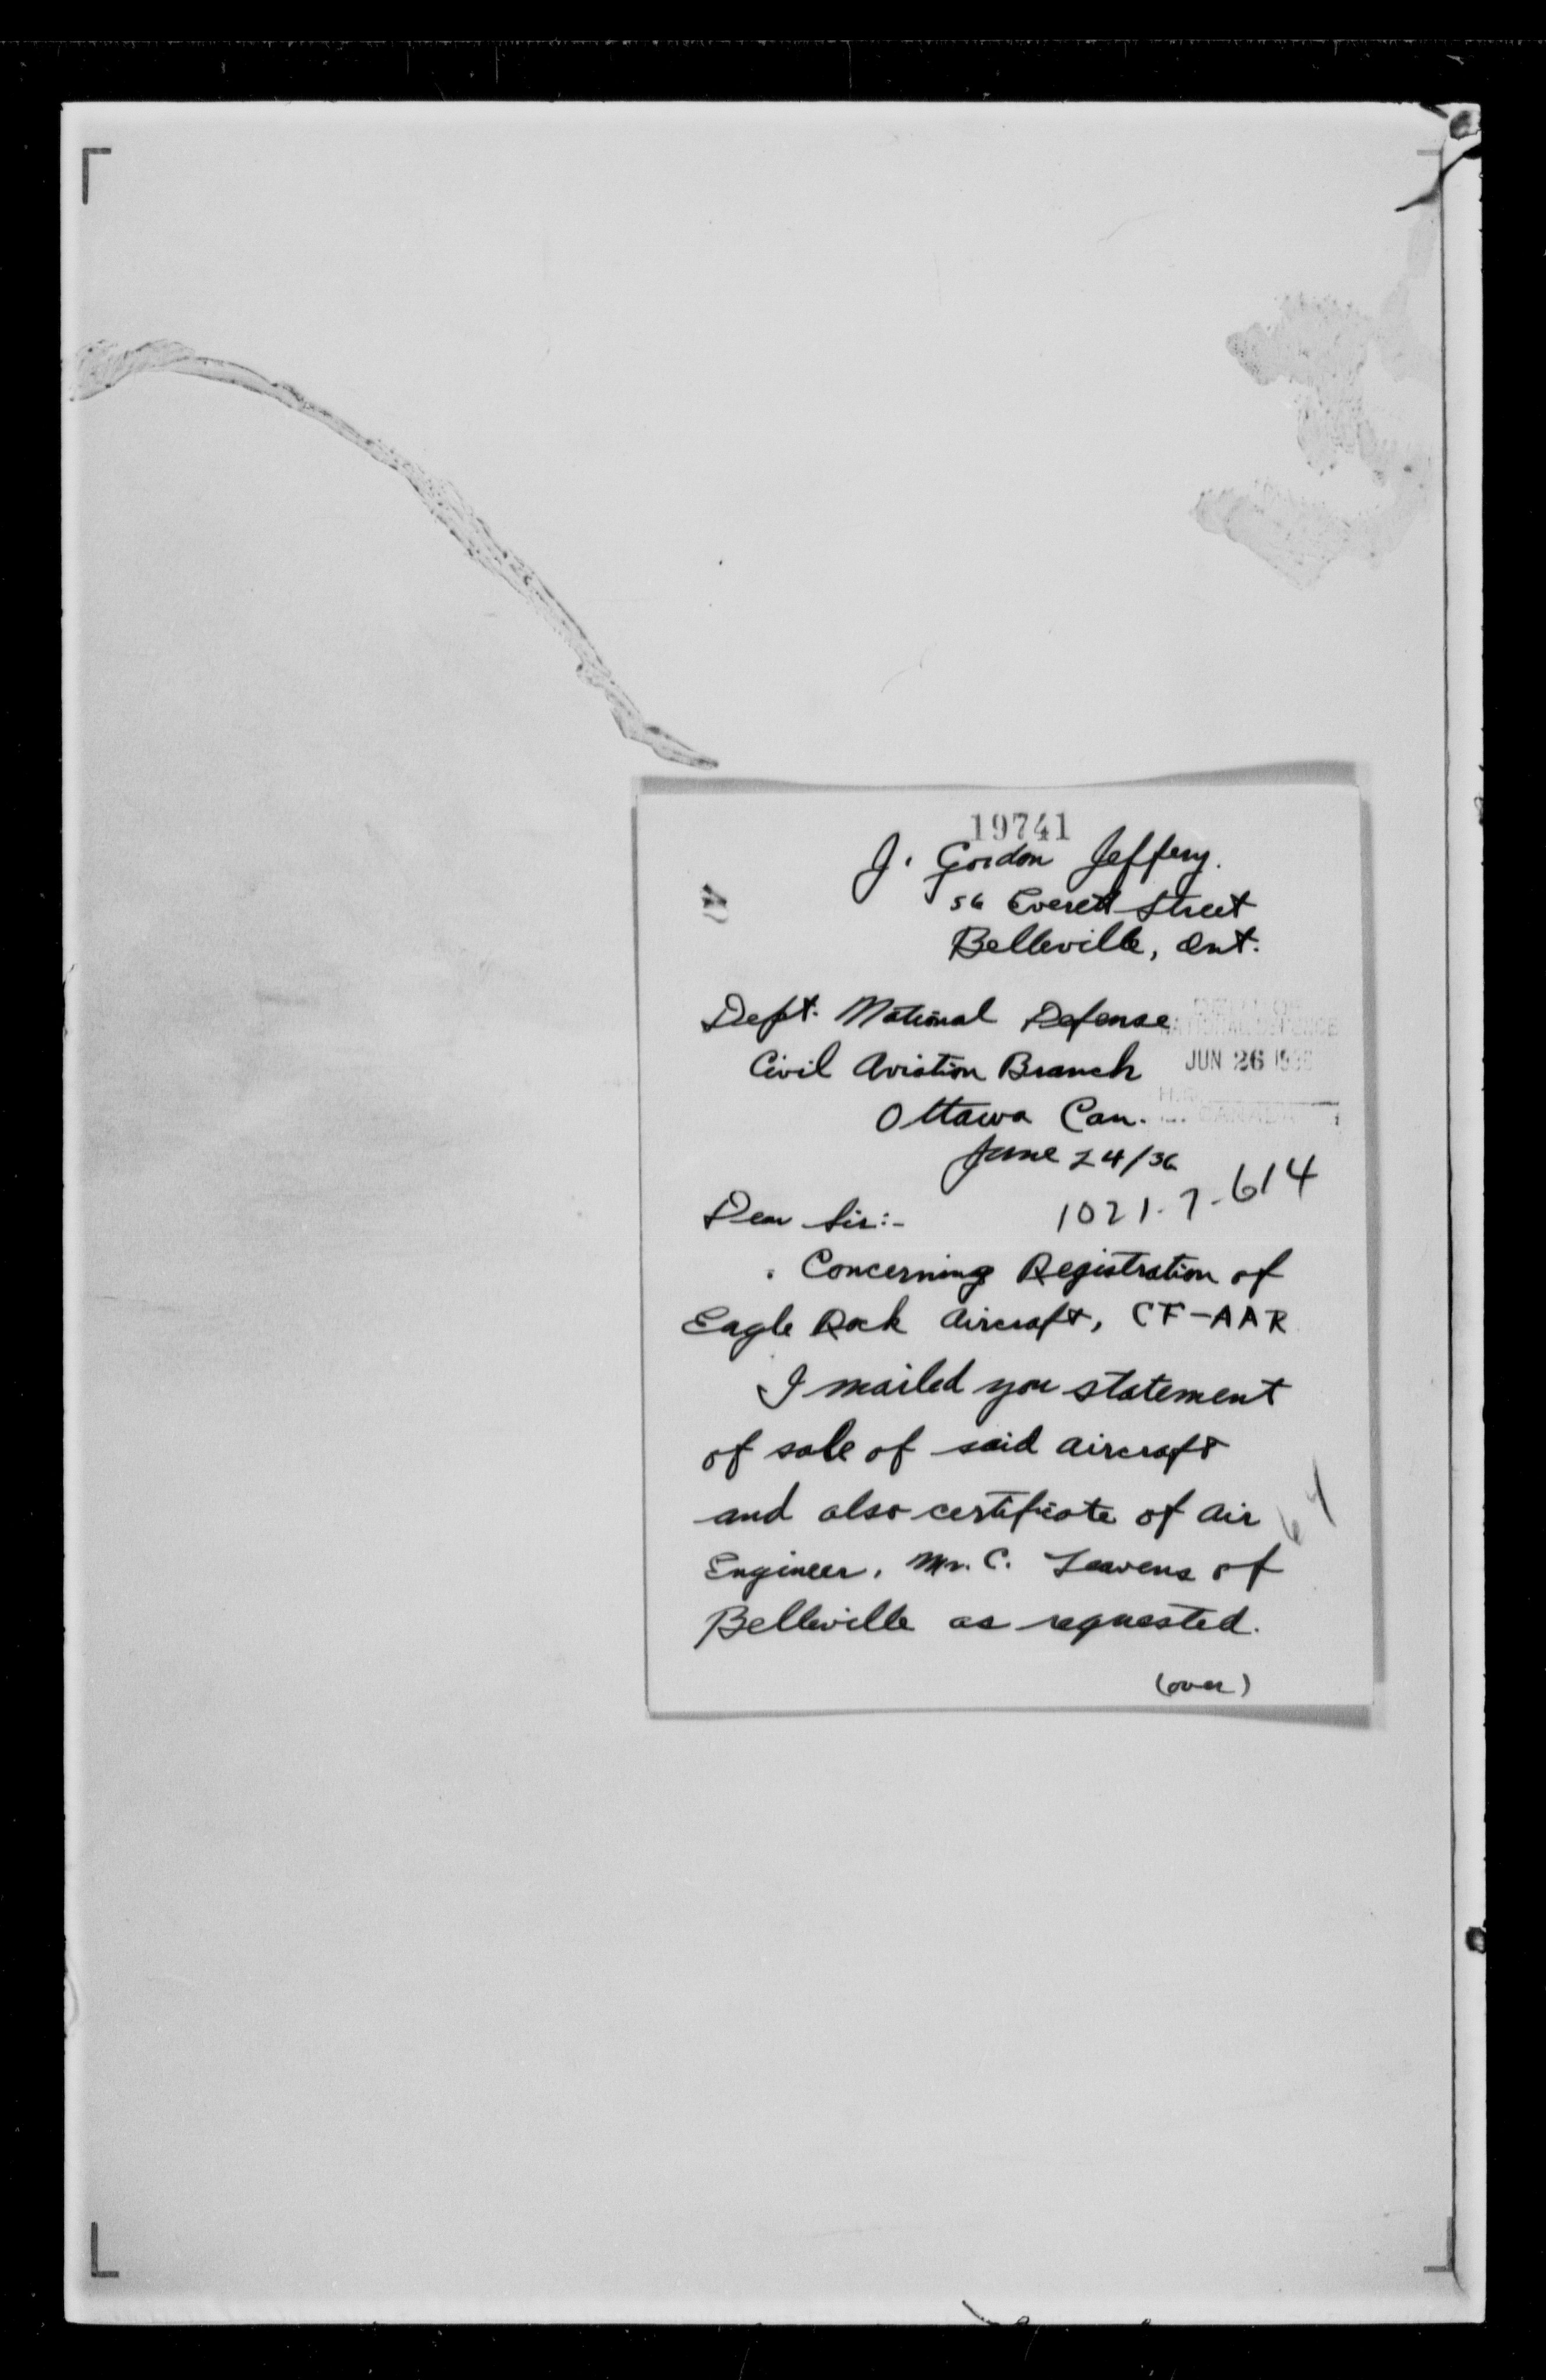 19741
J. Gordon Jeffery.
56 Everett Street
Belleville, Ont.
Dept. National Defense
NATIONAL DEFENCE
Civil Aviation Branch
JUN 26 1936
Ottawa Can.
CANADA
June 24/36
1021-7-614
Dear Sir:-
Concerning Registration of
Eagle Rock Aircraft, CF-AAR
I mailed you statement
of sale of said aircraft
and also certificate of Air
Engineer, Mr. C. Leavens of
Belleville as requested.
(over)